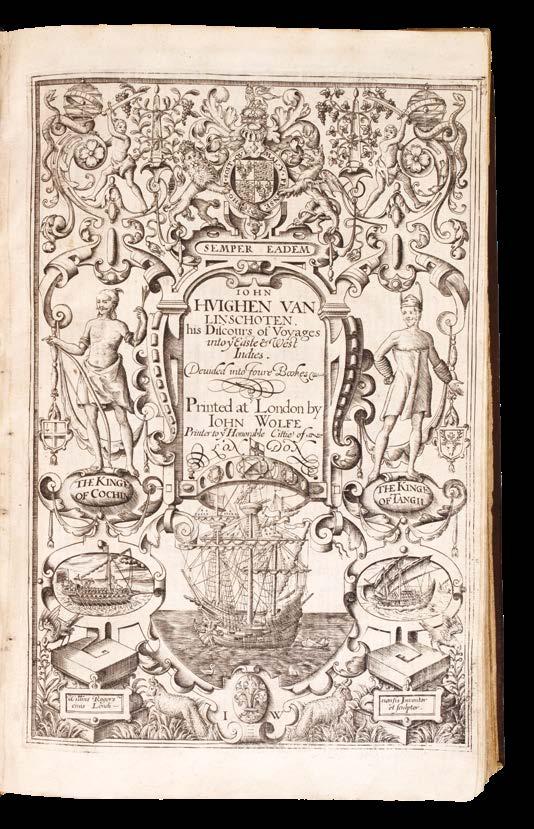 SEMPER EADEM
IOHN
HVIGHEN VAN
LINSCHOTEN.
his Discours of Voyages
into yͤ Easte & West
Indies.
Deuided into foure Bookes
Printed at London by
IOHN WOLFE
Printer to yͤ Honorable Cittie of
LONDON
THE KINGE
OF COCHIN
THE KINGE
OF TANGIL
Willms Rogers
ciuis Londi-
nensis Inuentor
et sculptor.
I W